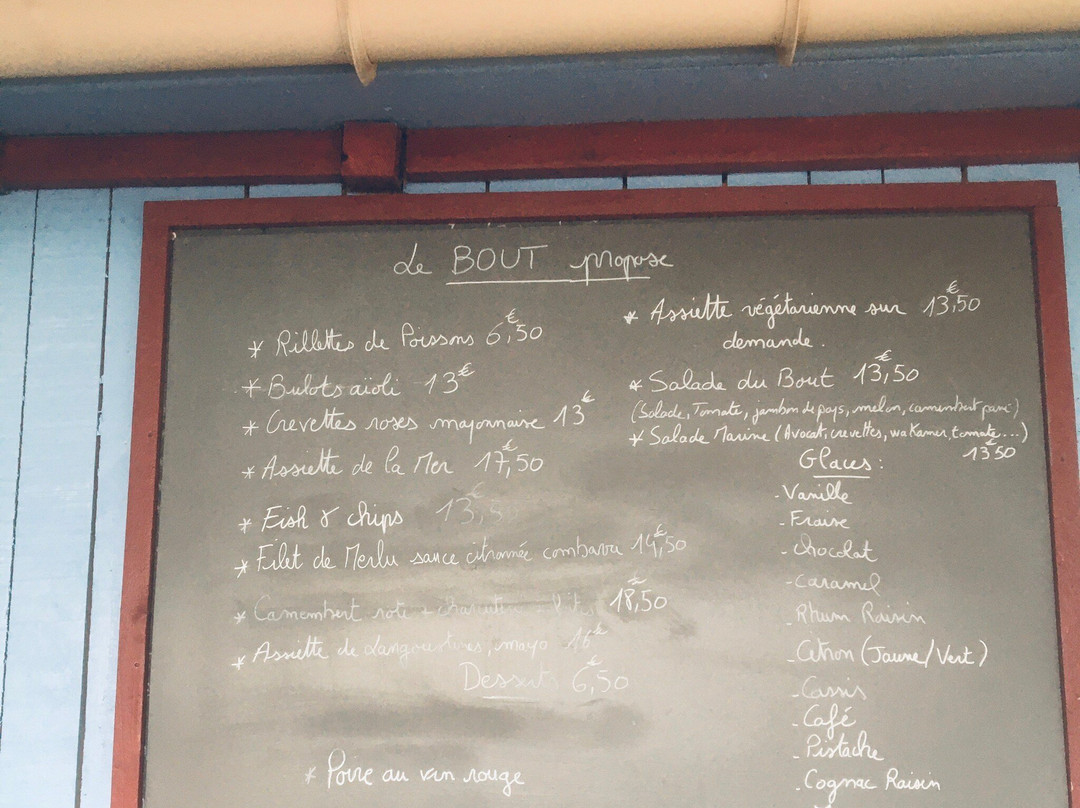 Le BOUT propose
* Rillettes de Poissons 6,50 €
* Bulots aïoli 13 €
* Crevettes roses mayonnaise 13 €
* Assiette de la Mer 17,50 €
* Fish & chips 13,5
* Filet de Merlu sauce citronnée combava 14,50 €
* Camembert roti + 18,50
* Assiette de Langoustines, mayo 16 €
Dessert 6,50 €
* Poire au vin rouge
* Assiette végétarienne sur 13,50 €
demande.
* Salade du Bout 13,50 €
(Salade, Tomate, jambon de pays, melon, camembert pané)
* Salade Marine (Avocat, crevettes, wakamé, tomate...)
13,50 €
Glaces :
- Vanille
- Fraise
- chocolat
- caramel
- Rhum Raisin
- Citron (Jaune/Vert)
- Cassis
- Café
- Pistache
- Cognac Raisin